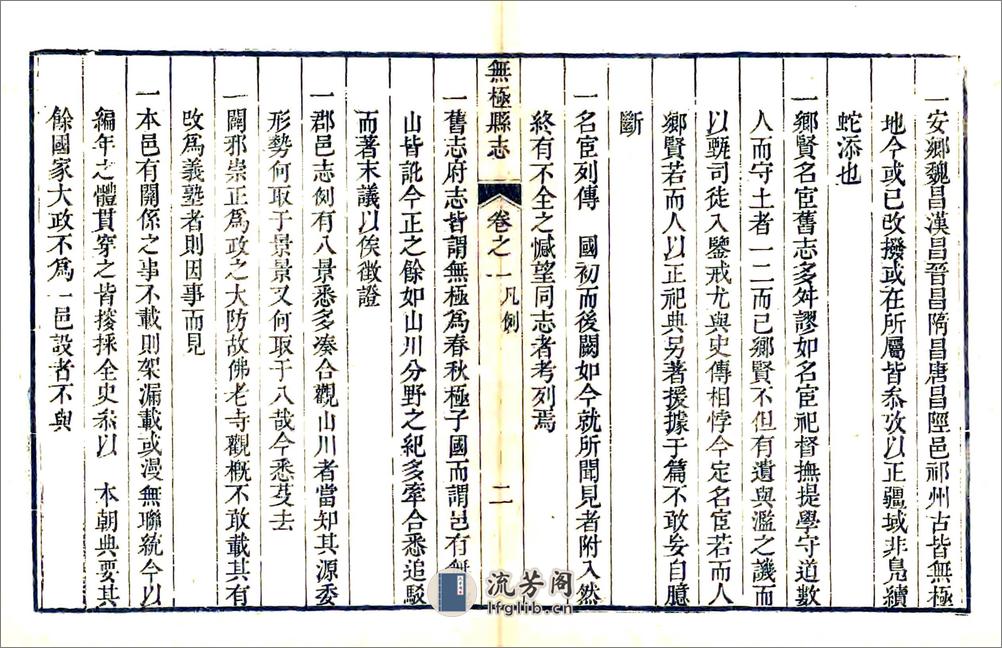 一安鄉魏昌漢昌晉昌隋昌唐昌陘邑祁州古皆無極
地今或已改撥或在所屬皆叅攷以正疆域非鳧續
蛇添也
一鄉賢名宦舊志多舛謬如名宦祀督撫提學守道數
人而守土者一二而已鄉賢不但有遺與濫之譏而
以甄司徒入鑒戒尤與史傳相悖今定名宦若而人
鄉賢若而人以正祀典另著援據于篇不敢妄自臆
斷
一名宦列傳 國初而後闕如今就所聞見者附入然
終有不全之憾望同志者考列焉
無極縣志 卷之一 凡例 二
一舊志府志皆謂無極為春秋極子國而謂邑有無
山皆訛今正之餘如山川分野之紀多牽合悉追駁
而著末議以俟徵證
一郡邑志例有八景悉多凑合觀山川者當知其源委
形勢何取于景景又何取于八哉今悉芟去
一闢邪崇正為政之大防故佛老寺觀概不敢載其有
改為義塾者則因事而見
一本邑有關係之事不載則架漏載或漫無聯統今以
編年之體貫穿之皆搜採全史叅以 本朝典要其
餘國家大政不為一邑設者不與
流芳阁
lfglib.cn